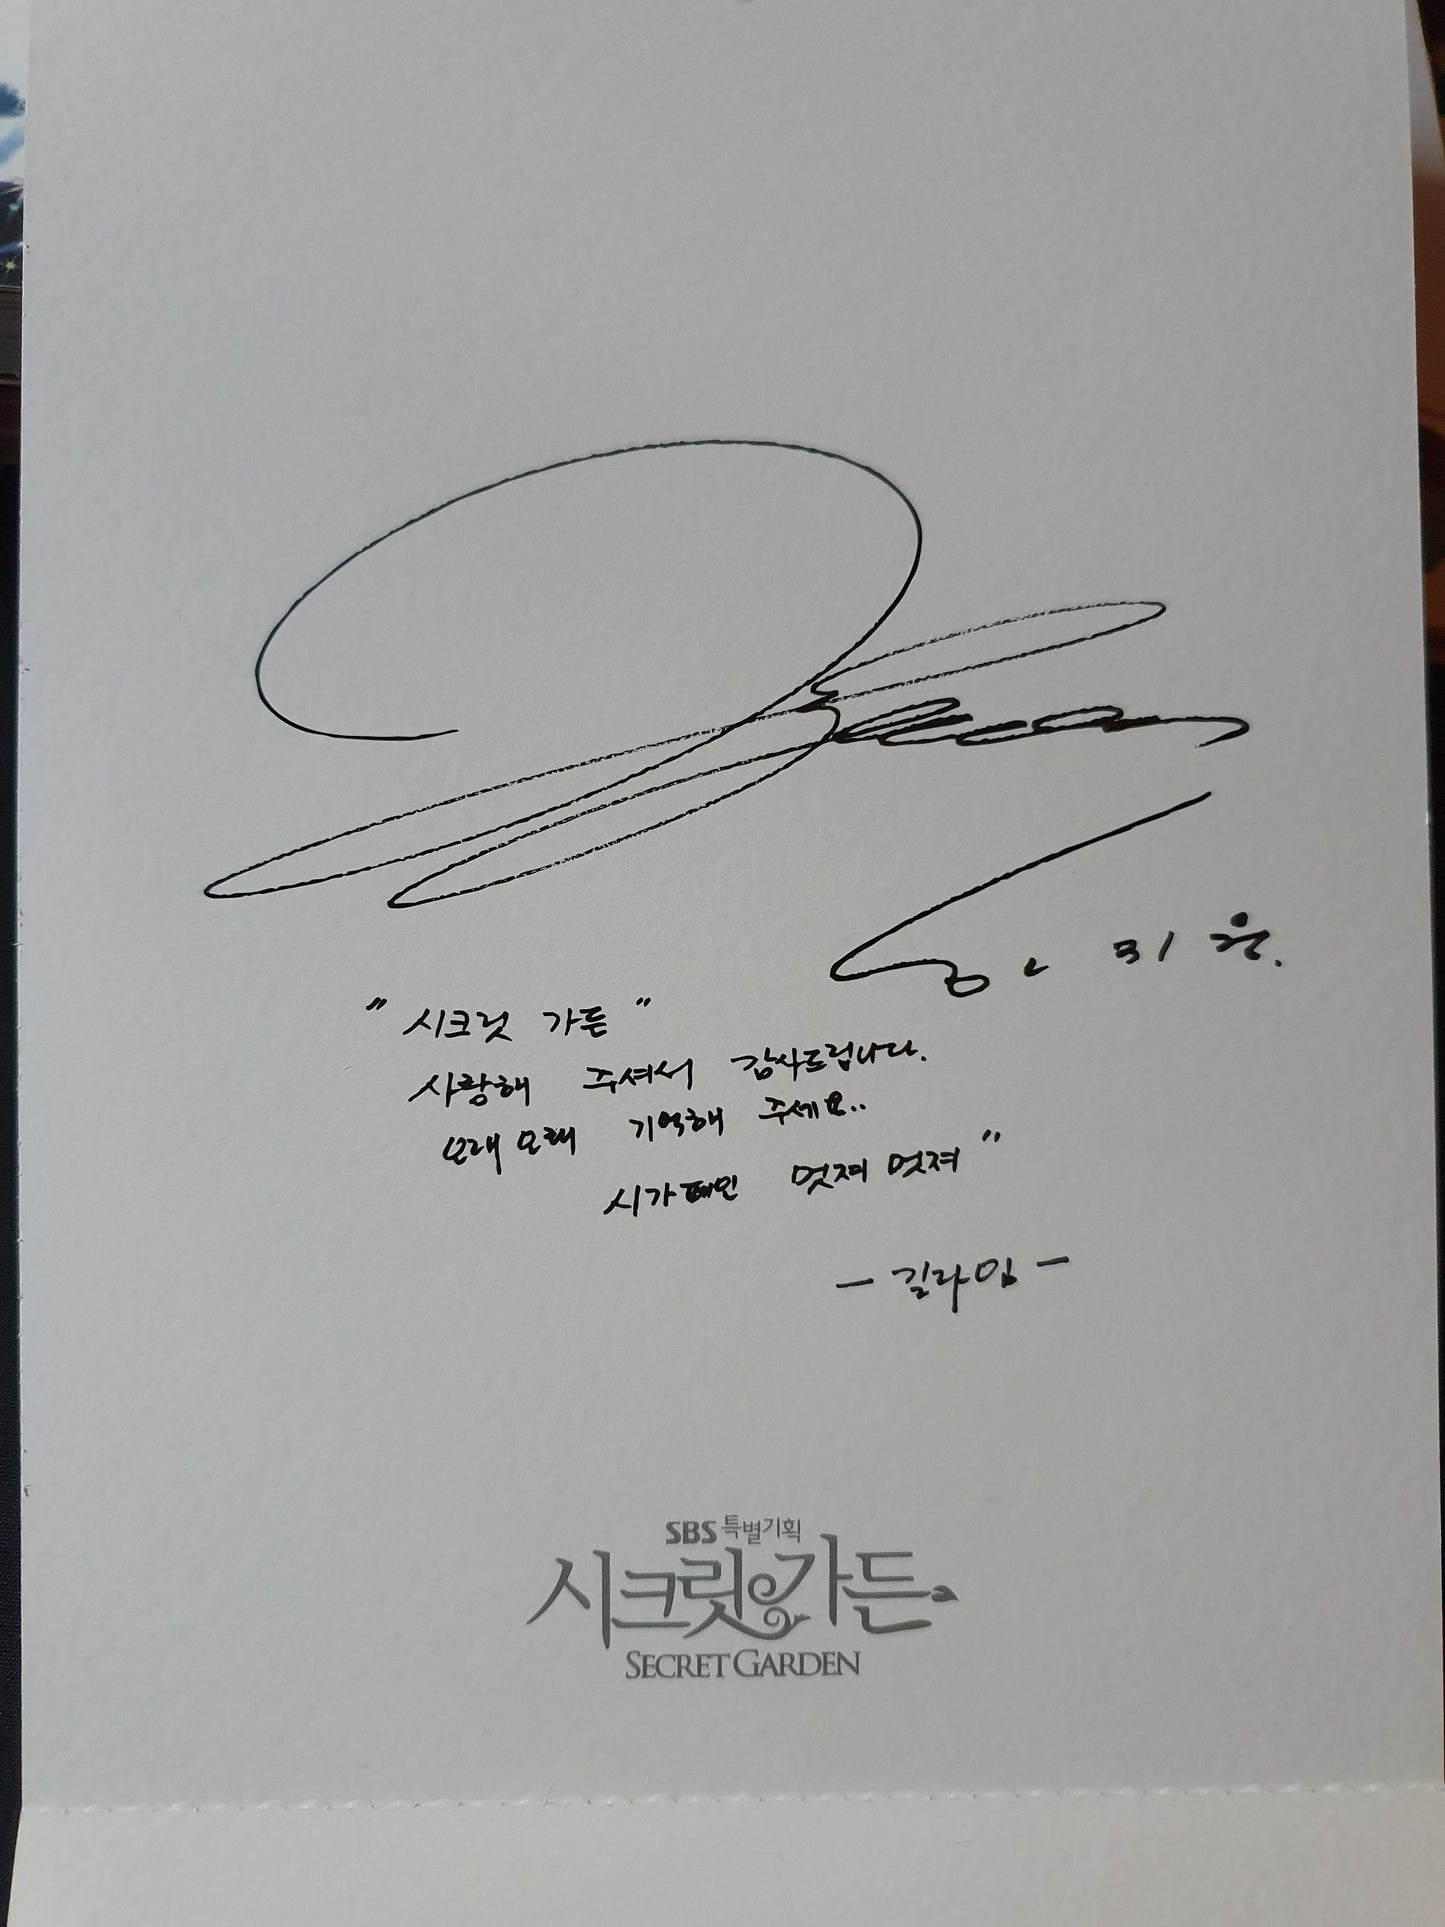 하지원.
"시크릿 가든"
사랑해 주셔서 감사드립니다.
오래오래 기억해 주세요..
시가폐인 멋져 멋져"
- 길라임 -
SBS 특별기획
시크릿 가든
SECRET GARDEN